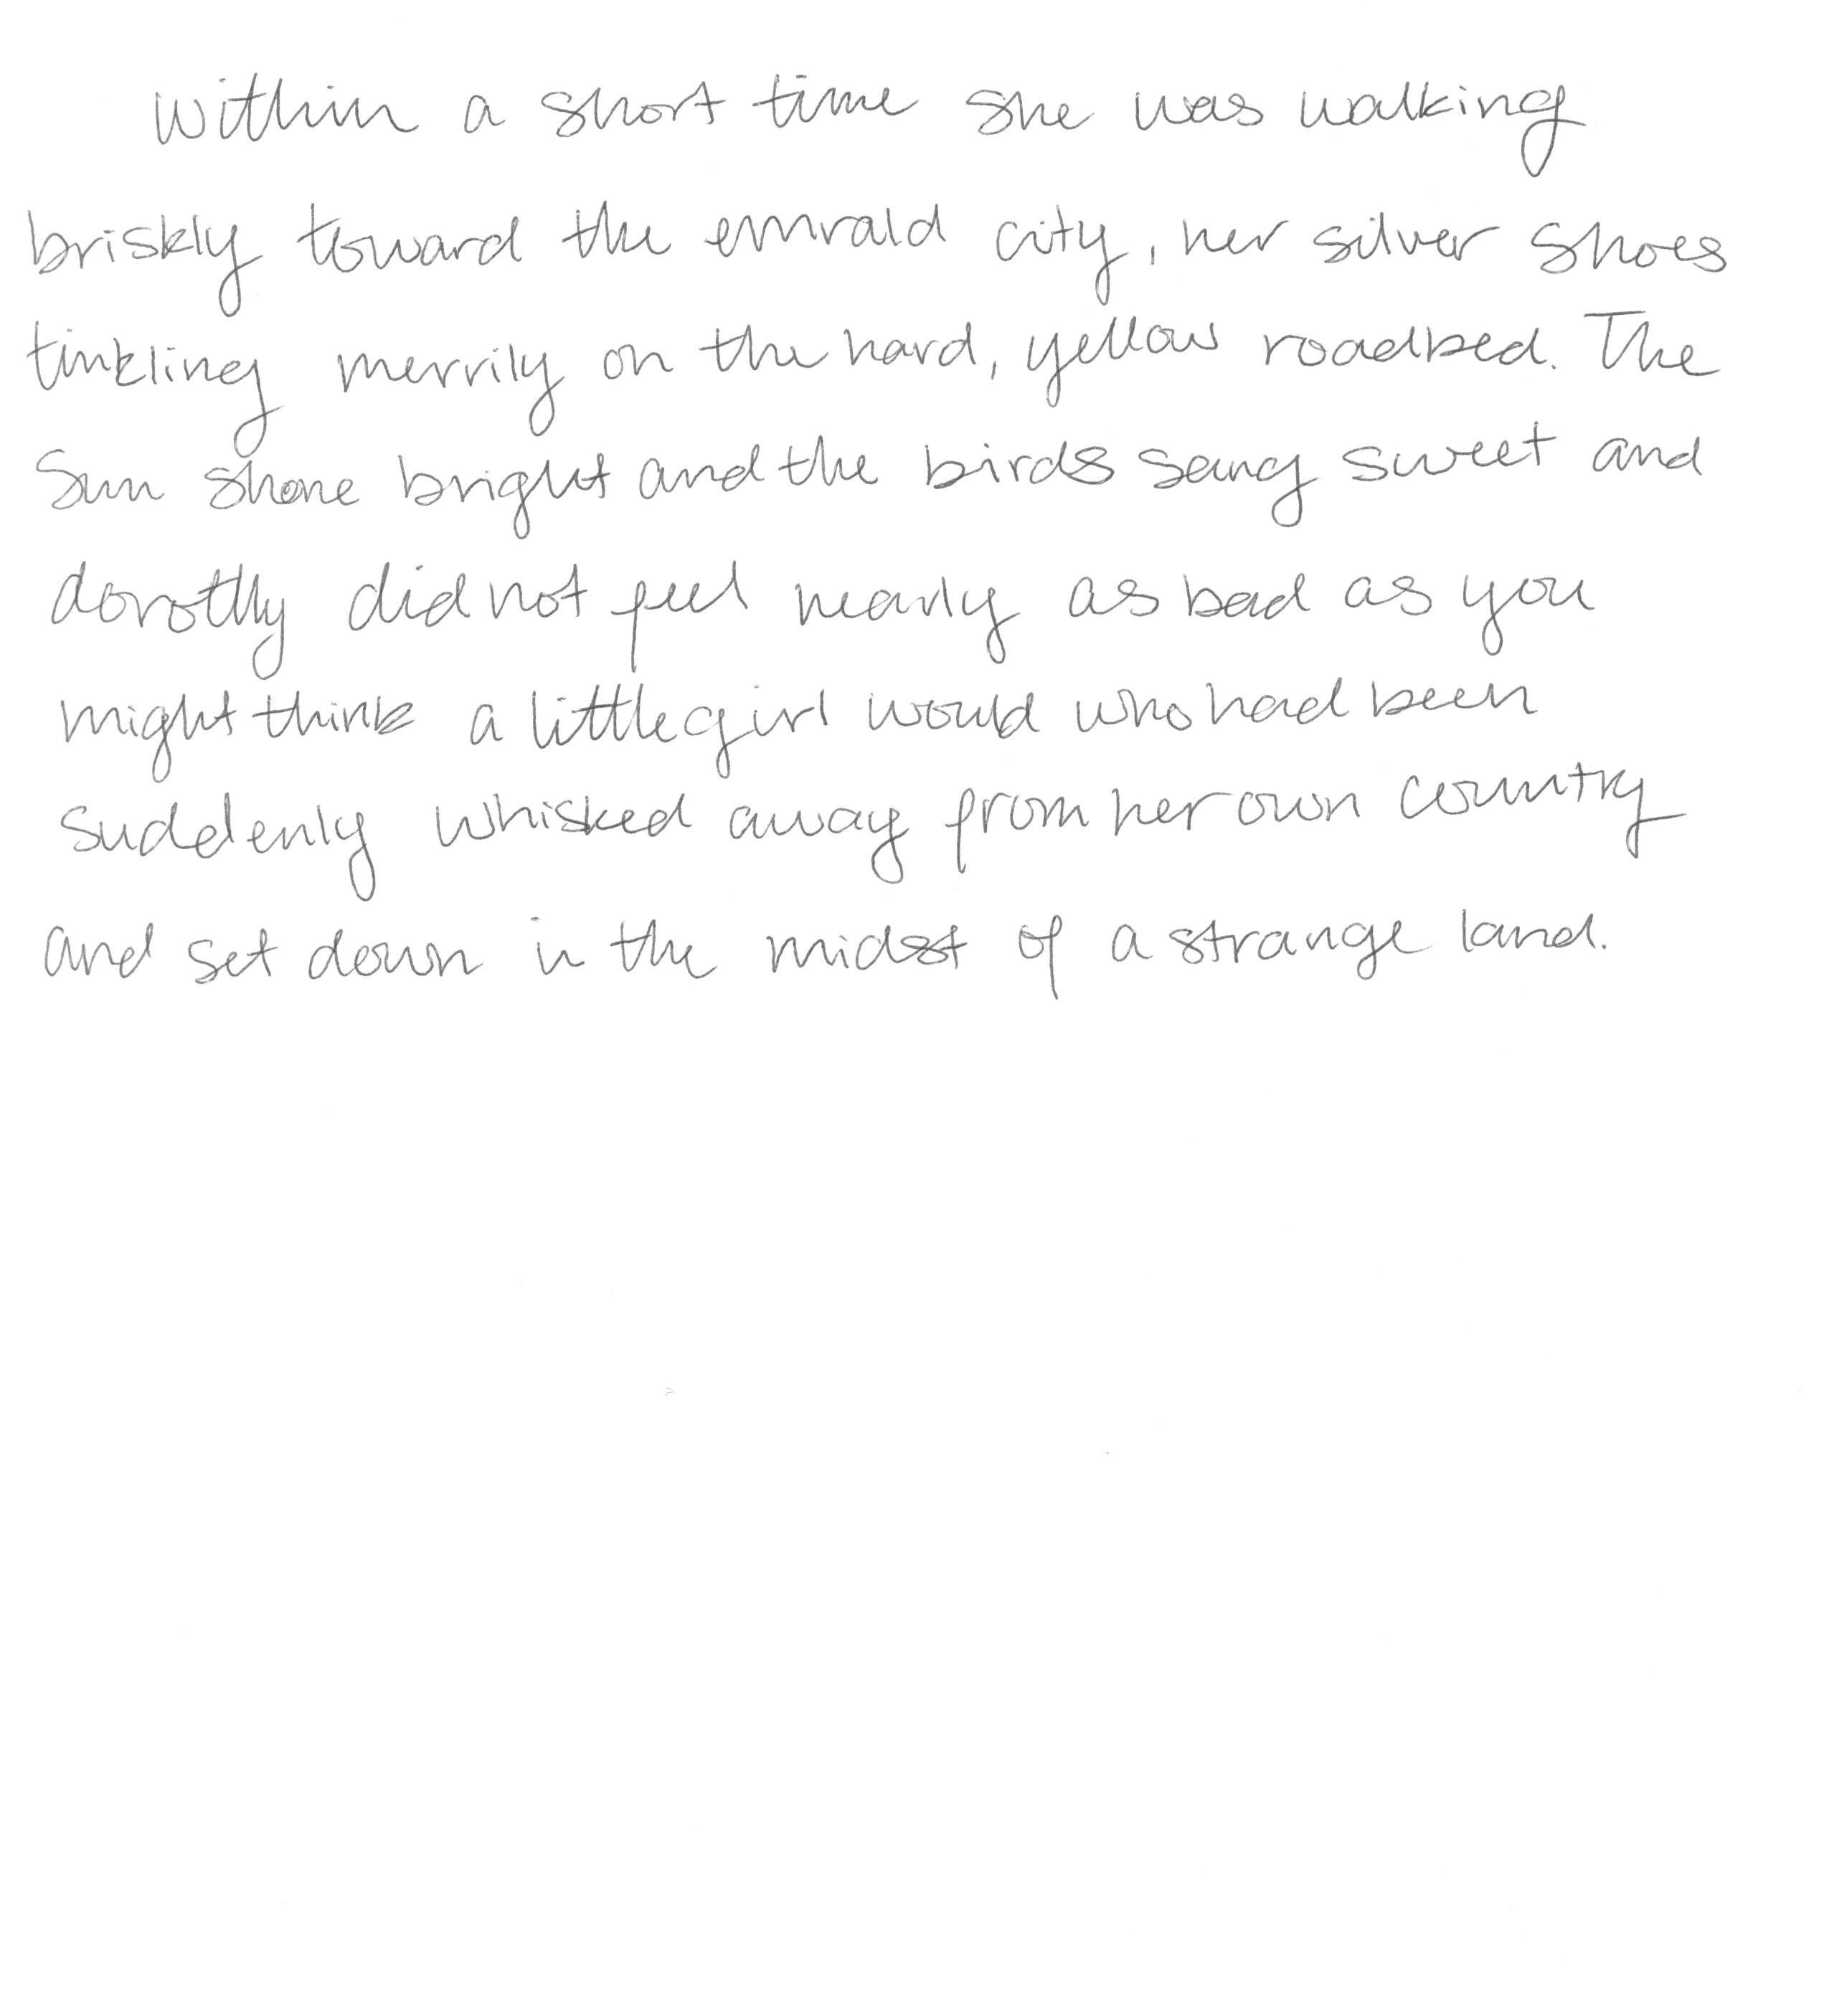 Within a short time she was walking
briskly toward the emrald city, her silver shoes
tinkling merrily on the hard, yellow roadbed. The
sun shone bright and the birds sang sweet and
dorothy did not feel nearly as bad as you
might think a little girl would who had been
suddenly whisked away from her own country
and set down in the midst of a strange land.